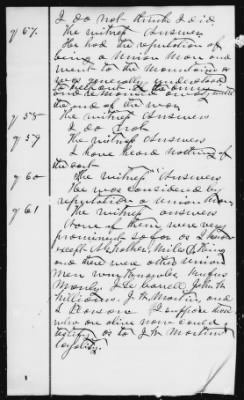 I do not think I did.
q 57. The witness Answers
He had the reputation of
being a Union Man and
went to the Mountains &
was generally understood
to keep out of the army
and remained away until
the end of the war
q 58 The witness Answers
I do not
q 59 The witness Answers
I have heard nothing of
the sort
q 60 The witness Answers
He was considered by
reputation a Union Man
q 61 The witness answers
None of them were very
prominent
except A. Mother, Miles
and there were other Union
men
John H
Williams. J. H. Martin, and
I suppose those
who are alive now could
testify as to J. H. Martins
loyalty.